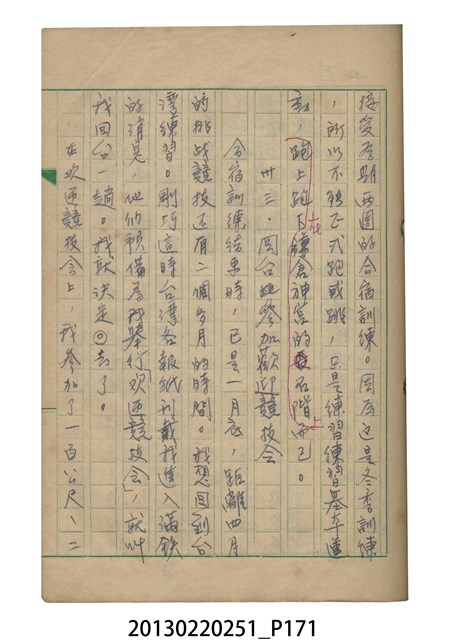 接受為期兩週的合宿訓練。因為這是冬季訓練
，所以不能正式跑或跳，只是練習練習基本運
動，跑上跑下在鎌倉神宮的石階上而已。
卅三·回台北參加歡迎競技会
合宿訓練結束時，已是一月底，距離四月
的挑战競技还有二個多月的時間。我想回到台
湾練習。剛巧這時台湾各報紙刊載我進入滿鉄
的消息，他们預備為我舉行「欢迎競技会」，就叫
我回台一趟。我就決定回去了。
在欢迎競技会上，我參加了一百公尺、二
20130220251_P171